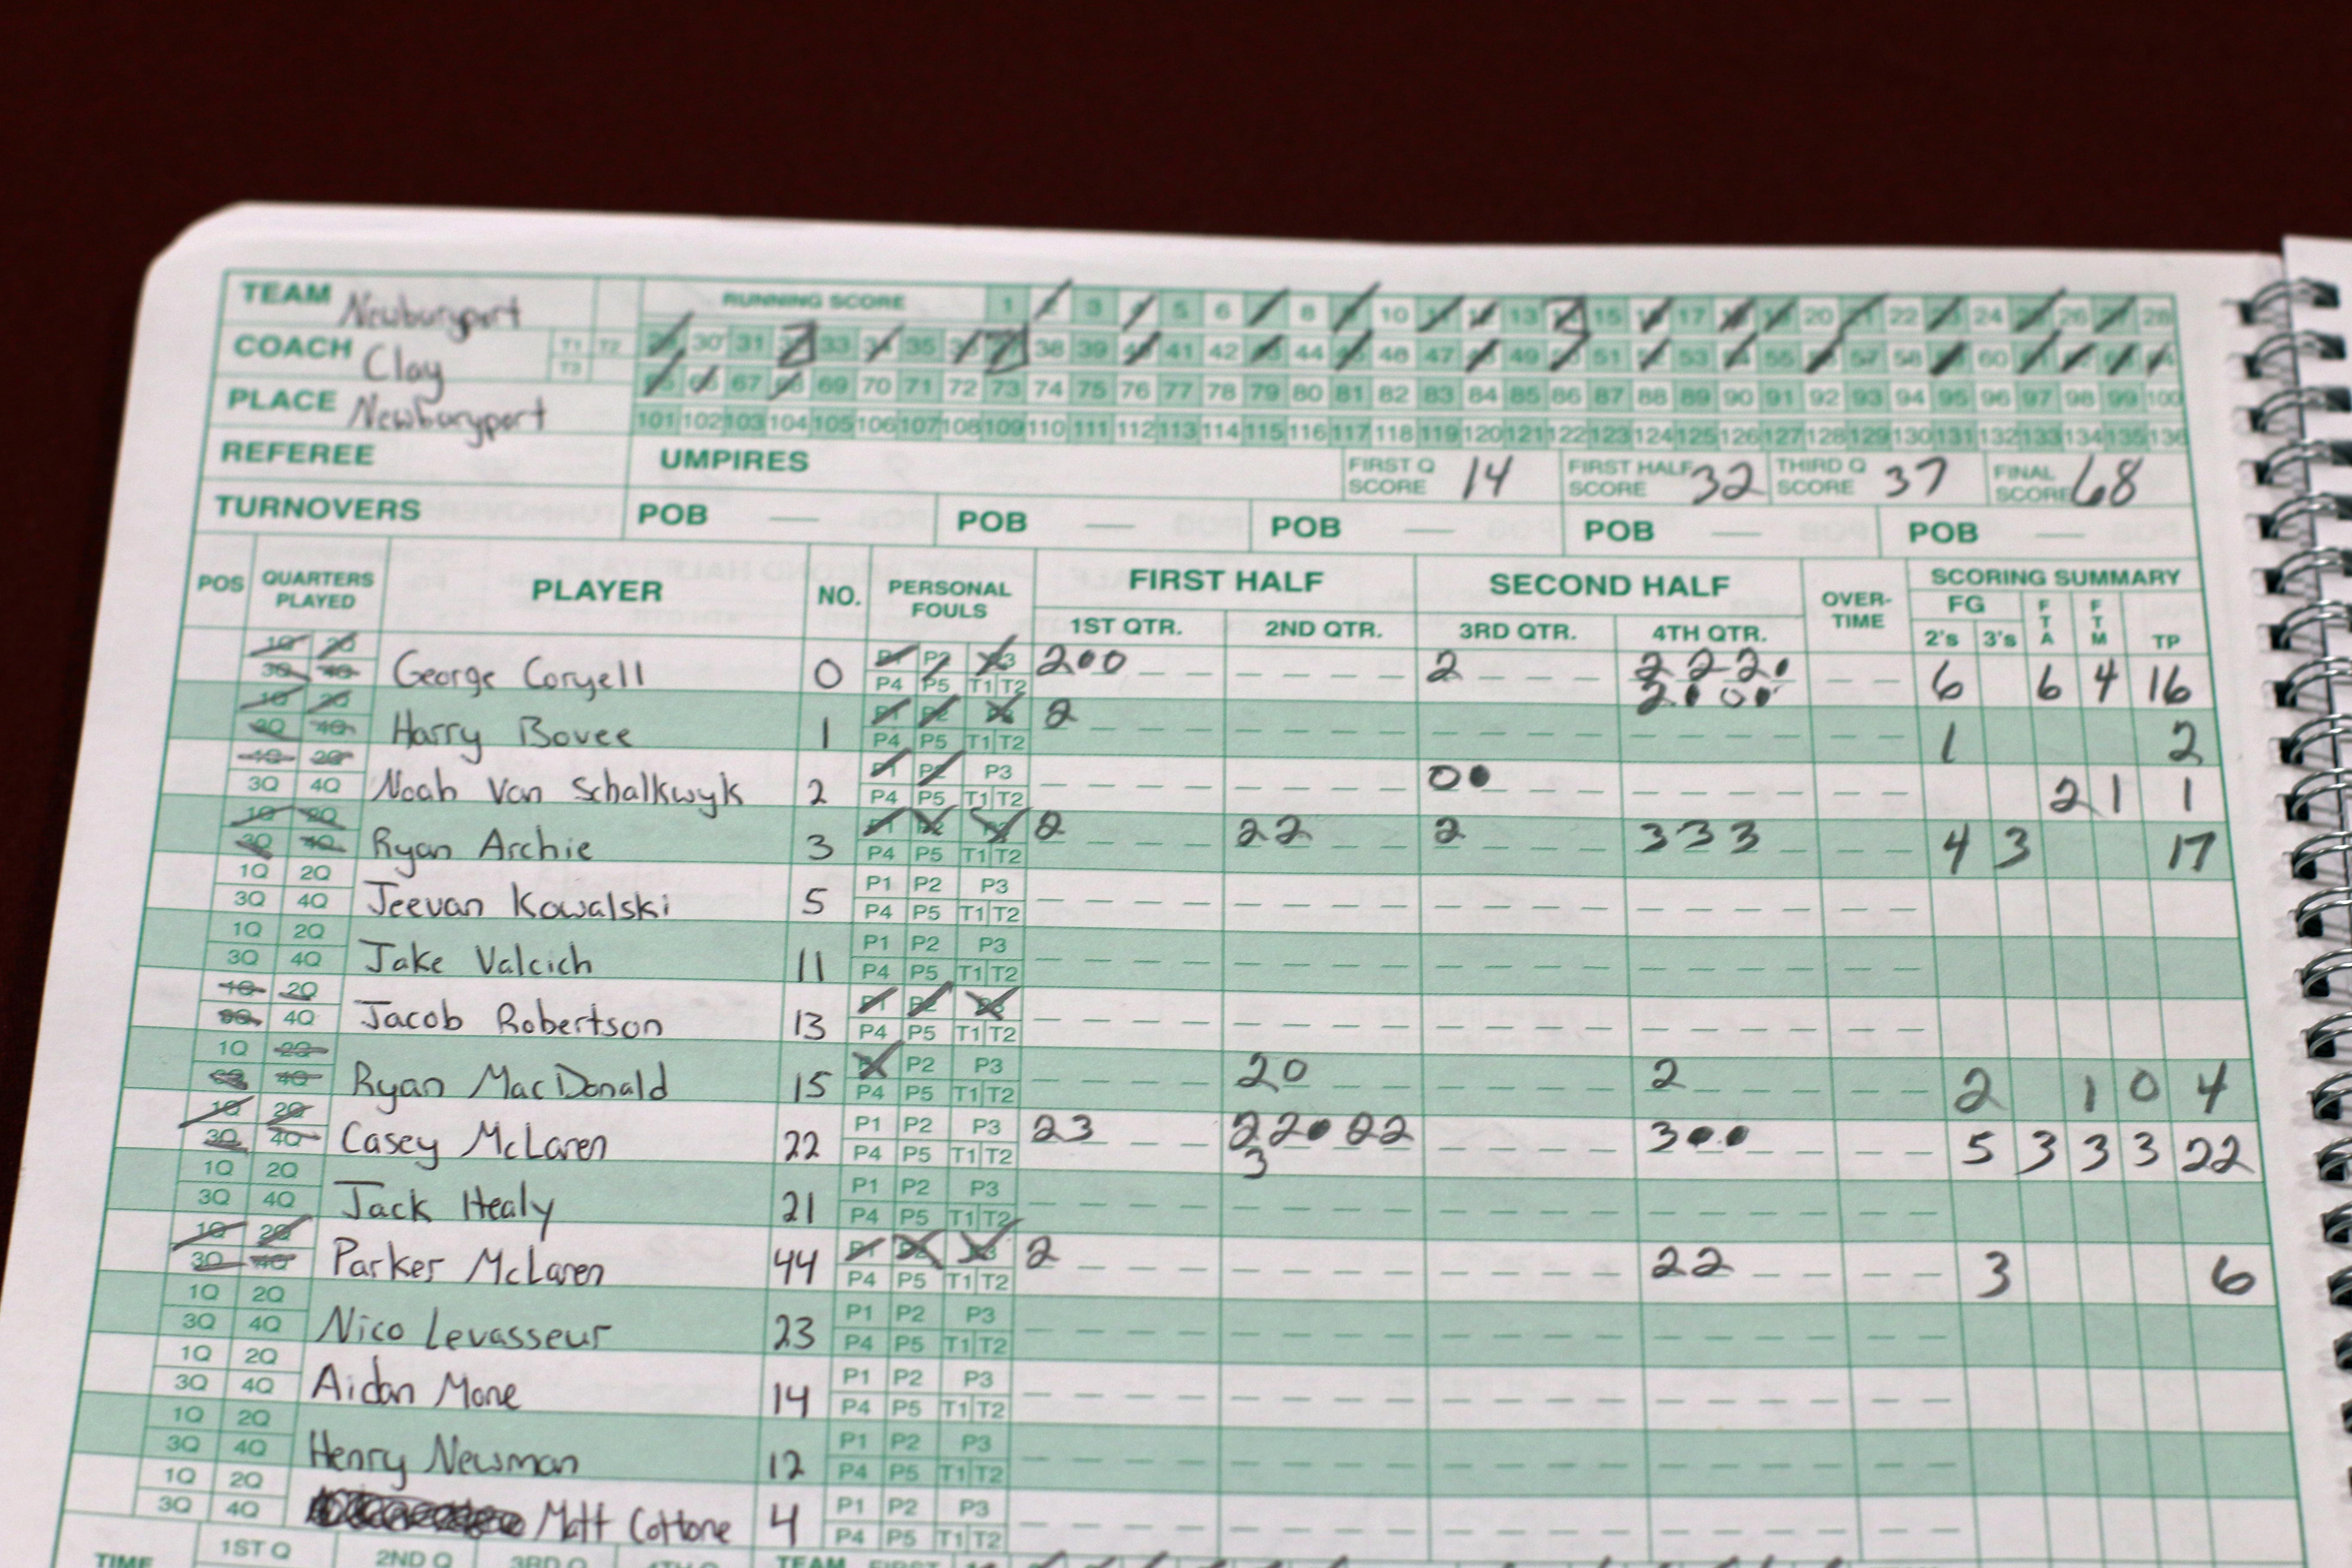 TEAM Newburyport RUNNING SCORE 1 2 3 4 5 6 7 8 9 10 11 12 13 14 15 16 17 18 19 20 21 22 23 24 25 26 27 28
COACH Clay T1 T2 T3 29 30 31 32 33 34 35 36 37 38 39 40 41 42 43 44 45 46 47 48 49 50 51 52 53 54 55 56 57 58 59 60 61 62 63 64
65 66 67 68 69 70 71 72 73 74 75 76 77 78 79 80 81 82 83 84 85 86 87 88 89 90 91 92 93 94 95 96 97 98 99 100
PLACE Newburyport 101 102 103 104 105 106 107 108 109 110 111 112 113 114 115 116 117 118 119 120 121 122 123 124 125 126 127 128 129 130 131 132 133 134 135 136
REFEREE UMPIRES FIRST Q SCORE 14 FIRST HALF SCORE 32 THIRD Q SCORE 37 FINAL SCORE 68
TURNOVERS POB — POB — POB — POB — POB —
POS QUARTERS PLAYED PLAYER NO. PERSONAL FOULS FIRST HALF SECOND HALF OVER-TIME SCORING SUMMARY
1ST QTR. 2ND QTR. 3RD QTR. 4TH QTR. FG 2's 3's FTA FTM TP
1Q 2Q P1 P2 P3
3Q 4Q George Coryell 0 P4 P5 T1 T2 2•0 2 2 2 2• 2• 0• 6 6 4 16
1Q 2Q P1 P2 P3
3Q 4Q Harry Bovee 1 P4 P5 T1 T2 2 1 2
1Q 2Q P1 P2 P3
3Q 4Q Noah Van Schalkwyk 2 P4 P5 T1 T2 0• 2 1 1
1Q 2Q P1 P2 P3
3Q 4Q Ryan Archie 3 P4 P5 T1 T2 2 2 2 2 3 3 3 4 3 17
1Q 2Q P1 P2 P3
3Q 4Q Jeevan Kowalski 5 P4 P5 T1 T2
1Q 2Q P1 P2 P3
3Q 4Q Jake Valcich 11 P4 P5 T1 T2
1Q 2Q P1 P2 P3
3Q 4Q Jacob Robertson 13 P4 P5 T1 T2
1Q 2Q P1 P2 P3
3Q 4Q Ryan MacDonald 15 P4 P5 T1 T2 2 0 2 2 1 0 4
1Q 2Q P1 P2 P3
3Q 4Q Casey McLaren 22 P4 P5 T1 T2 2 3 2 2• 2 2 3 3•• 5 3 3 3 22
1Q 2Q P1 P2 P3
3Q 4Q Jack Healy 21 P4 P5 T1 T2
1Q 2Q P1 P2 P3
3Q 4Q Parker McLaren 44 P4 P5 T1 T2 2 2 2 3 6
1Q 2Q P1 P2 P3
3Q 4Q Nico Levasseur 23 P4 P5 T1 T2
1Q 2Q P1 P2 P3
3Q 4Q Aidan Mone 14 P4 P5 T1 T2
1Q 2Q P1 P2 P3
3Q 4Q Henry Newman 12 P4 P5 T1 T2
1Q 2Q P1 P2 P3
3Q 4Q Matt Cottone 4 P4 P5 T1 T2
TIME 1ST Q 2ND Q 3RD Q 4TH Q TEAM FIRST